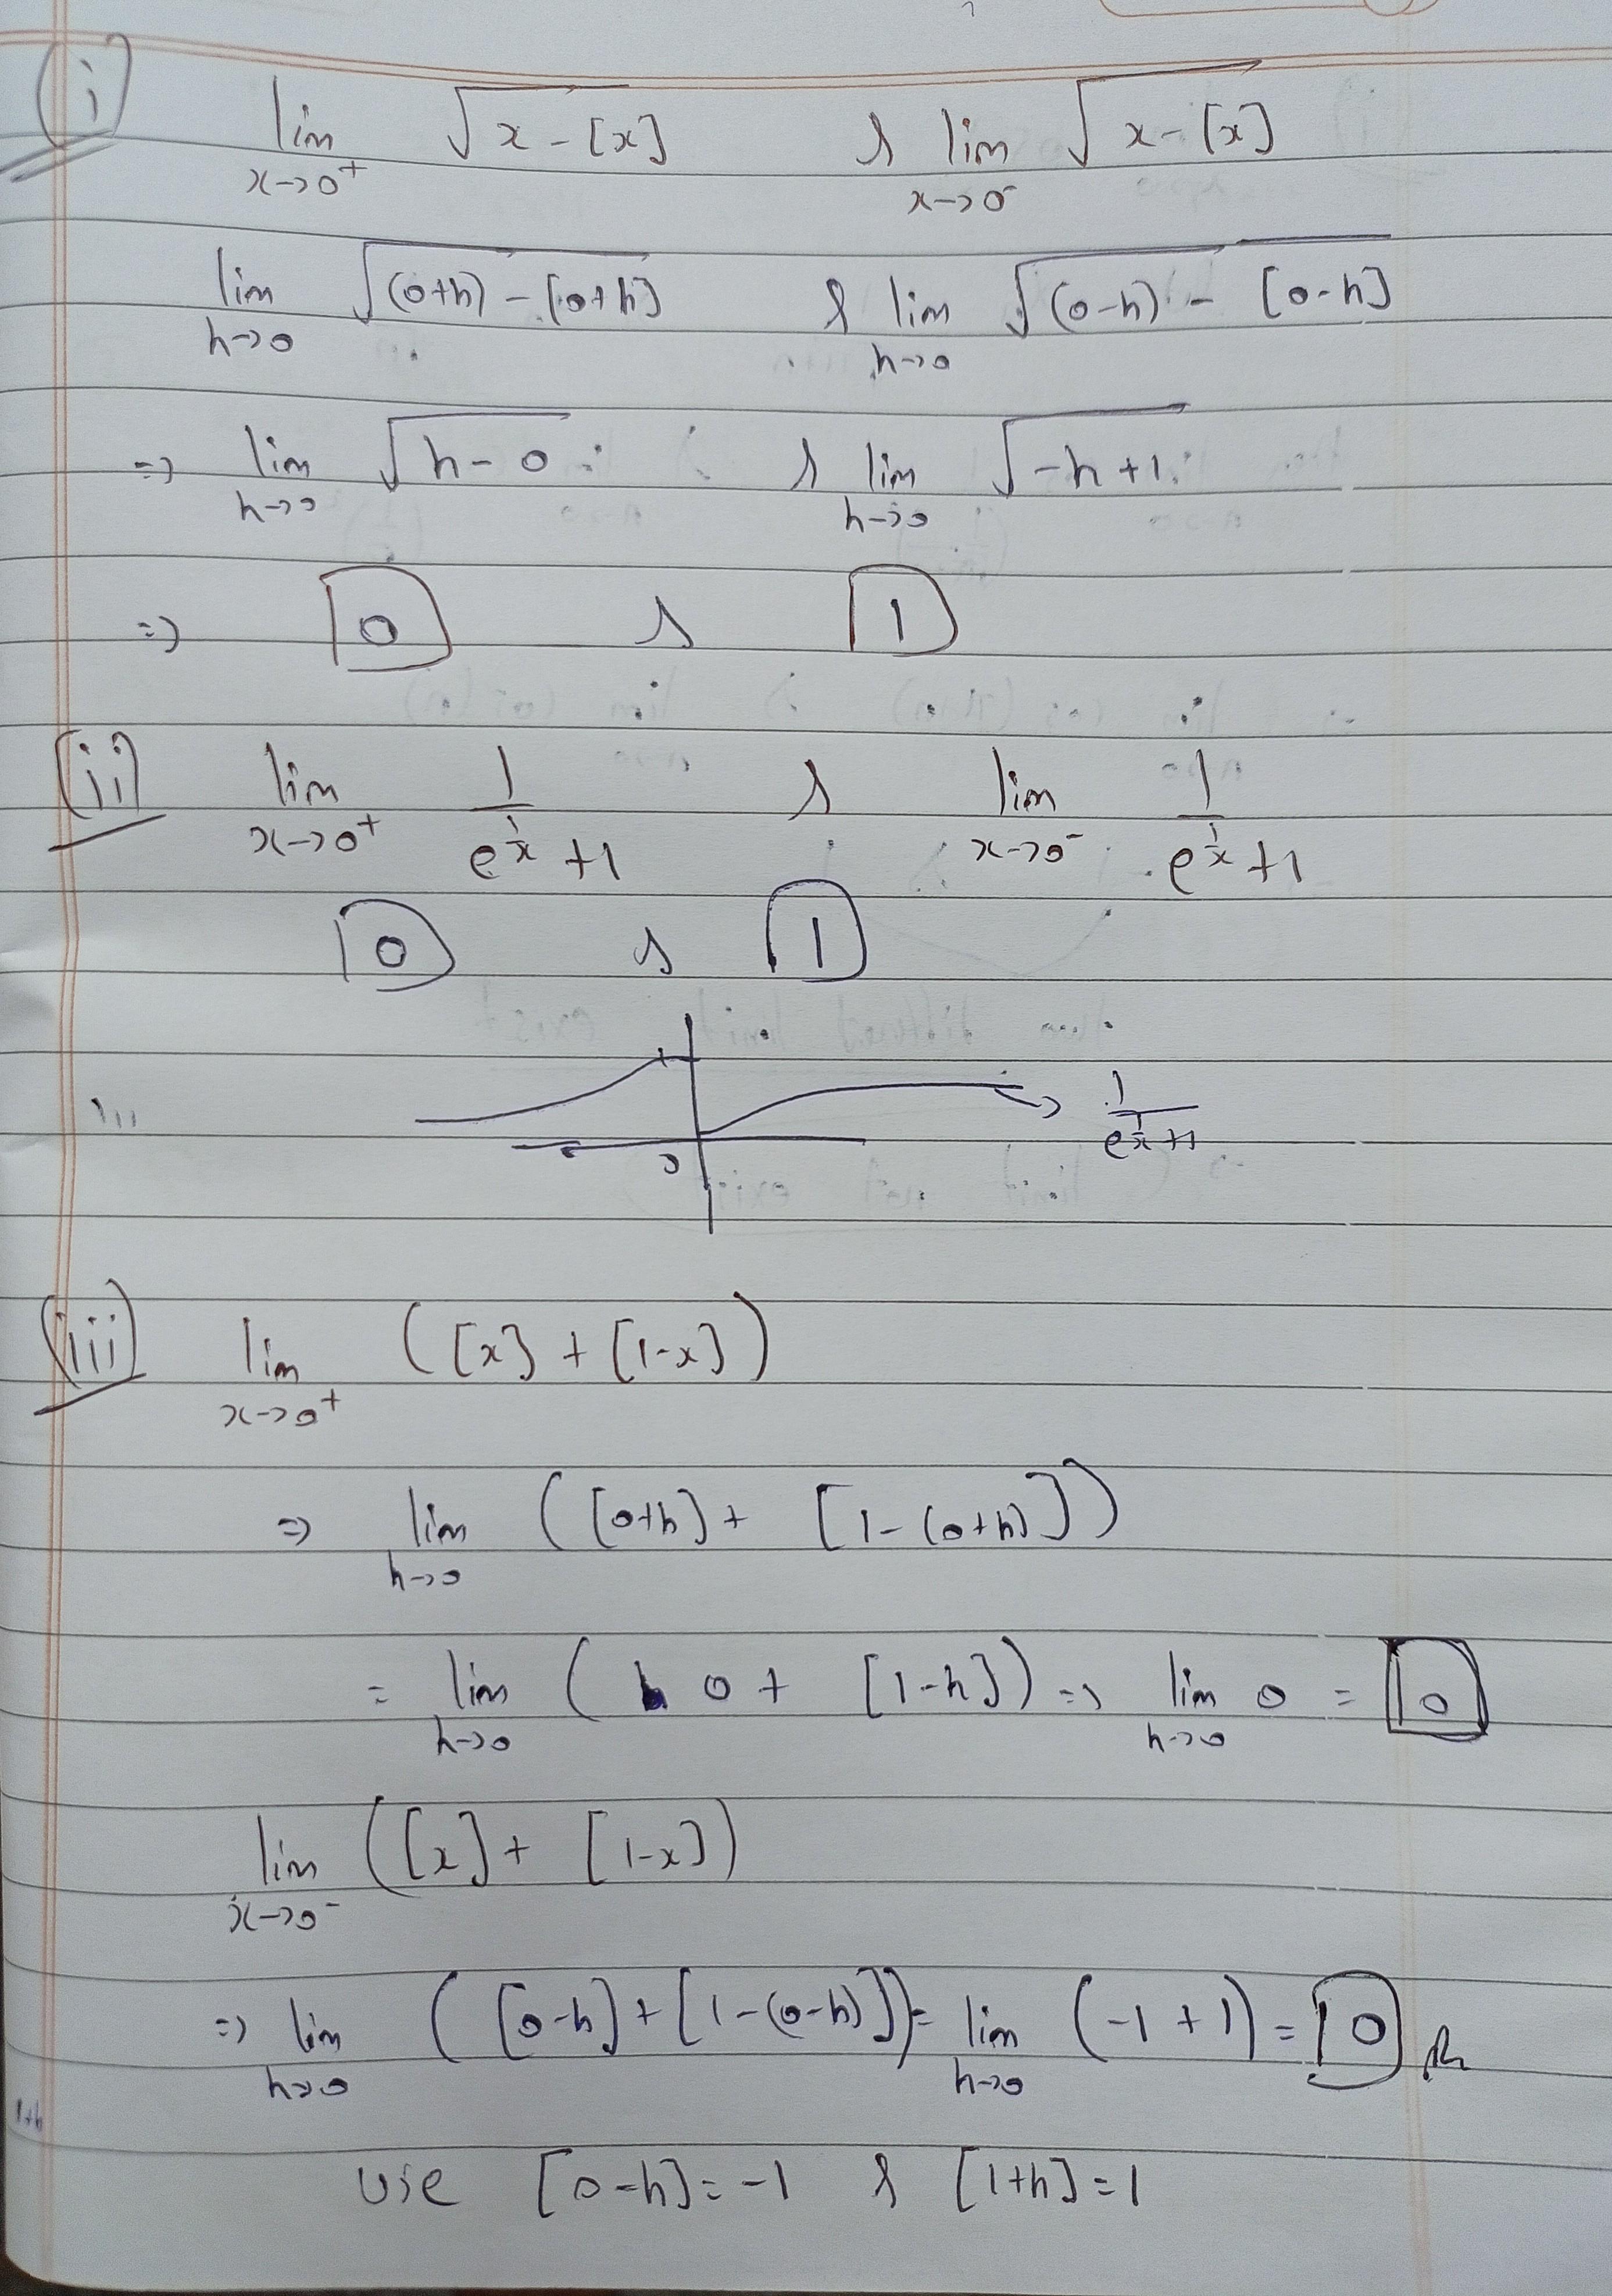 (i) lim x→0⁺ √(x-[x]) & lim x→0⁻ √(x-[x])
lim h→0 √((0+h)-[0+h]) & lim h→0 √((0-h)-[0-h])
⇒ lim h→0 √(h-0) & lim h→0 √(-h+1)
⇒ 0 & 1
(ii) lim x→0⁺ 1/(e^(1/x)+1) & lim x→0⁻ 1/(e^(1/x)+1)
0 & 1
1/(e^(1/x)+1)
0
(iii) lim x→0⁺ ([x]+[1-x])
⇒ lim h→0 ([0+h]+[1-(0+h)])
= lim h→0 (0+[1-h]) ⇒ lim h→0 0 = 0
lim x→0⁻ ([x]+[1-x])
⇒ lim h→0 ([0-h]+[1-(0-h)]) = lim h→0 (-1+1) = 0
use [0-h]=-1 & [1+h]=1